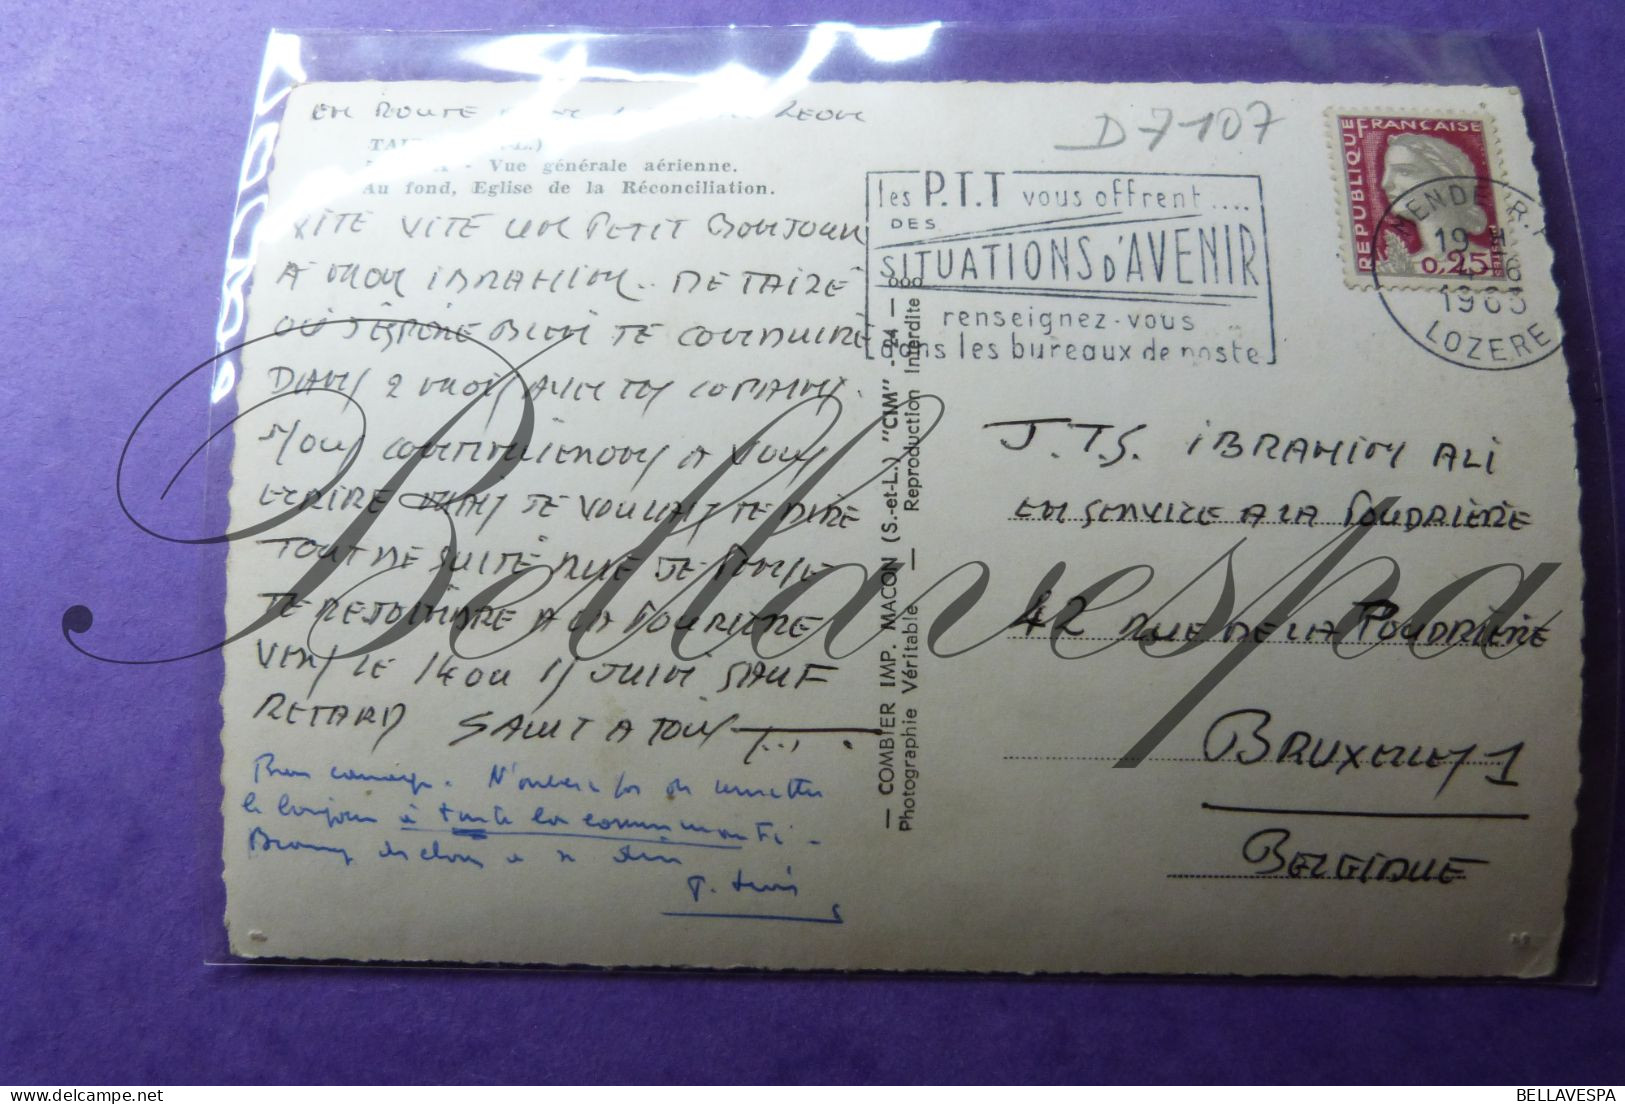 EN ROUTE
D-7107
TAI L.)
Vue générale aérienne.
Au fond, Eglise de la Réconciliation.
VITE VITE UN PETIT BONJOUR
A MON IBRAHIM.. DE TAIZÉ
OU J'ESPERE BIEN TE CONDUIRE
DANS 2 MOIS AVEC TES COPAINS.
NOUS CONTINUERONS A VOUS
ECRIRE MAIS JE VOULAIS TE DIRE
TOUT DE SUITE QUE JE PENSE
TE REJOINDRE A LA POUDRIERE
VERS LE 14 OU 15 JUIN SAUF
RETARD SALUT A TOUS
Bon courage. N'oublie pas de remettre
le bonjour à toute la communauté.
les P.T.T vous offrent....
DES
SITUATIONS D'AVENIR
renseignez-vous
dans les bureaux de poste
REPUBLIQUE FRANÇAISE
0,25
POSTES
MENDE R.P
19 H
LOZERE
— COMBIER IMP. MACON (S.-et-L.) "CIM" —
Photographie Véritable — Reproduction Interdite
J.T.S. IBRAHIM ALI
EN SERVICE A LA POUDRIÈRE
42 RUE DE LA POUDRIÈRE
BRUXELLES 1
BELGIQUE
Bellavespa
BELLAVESPA